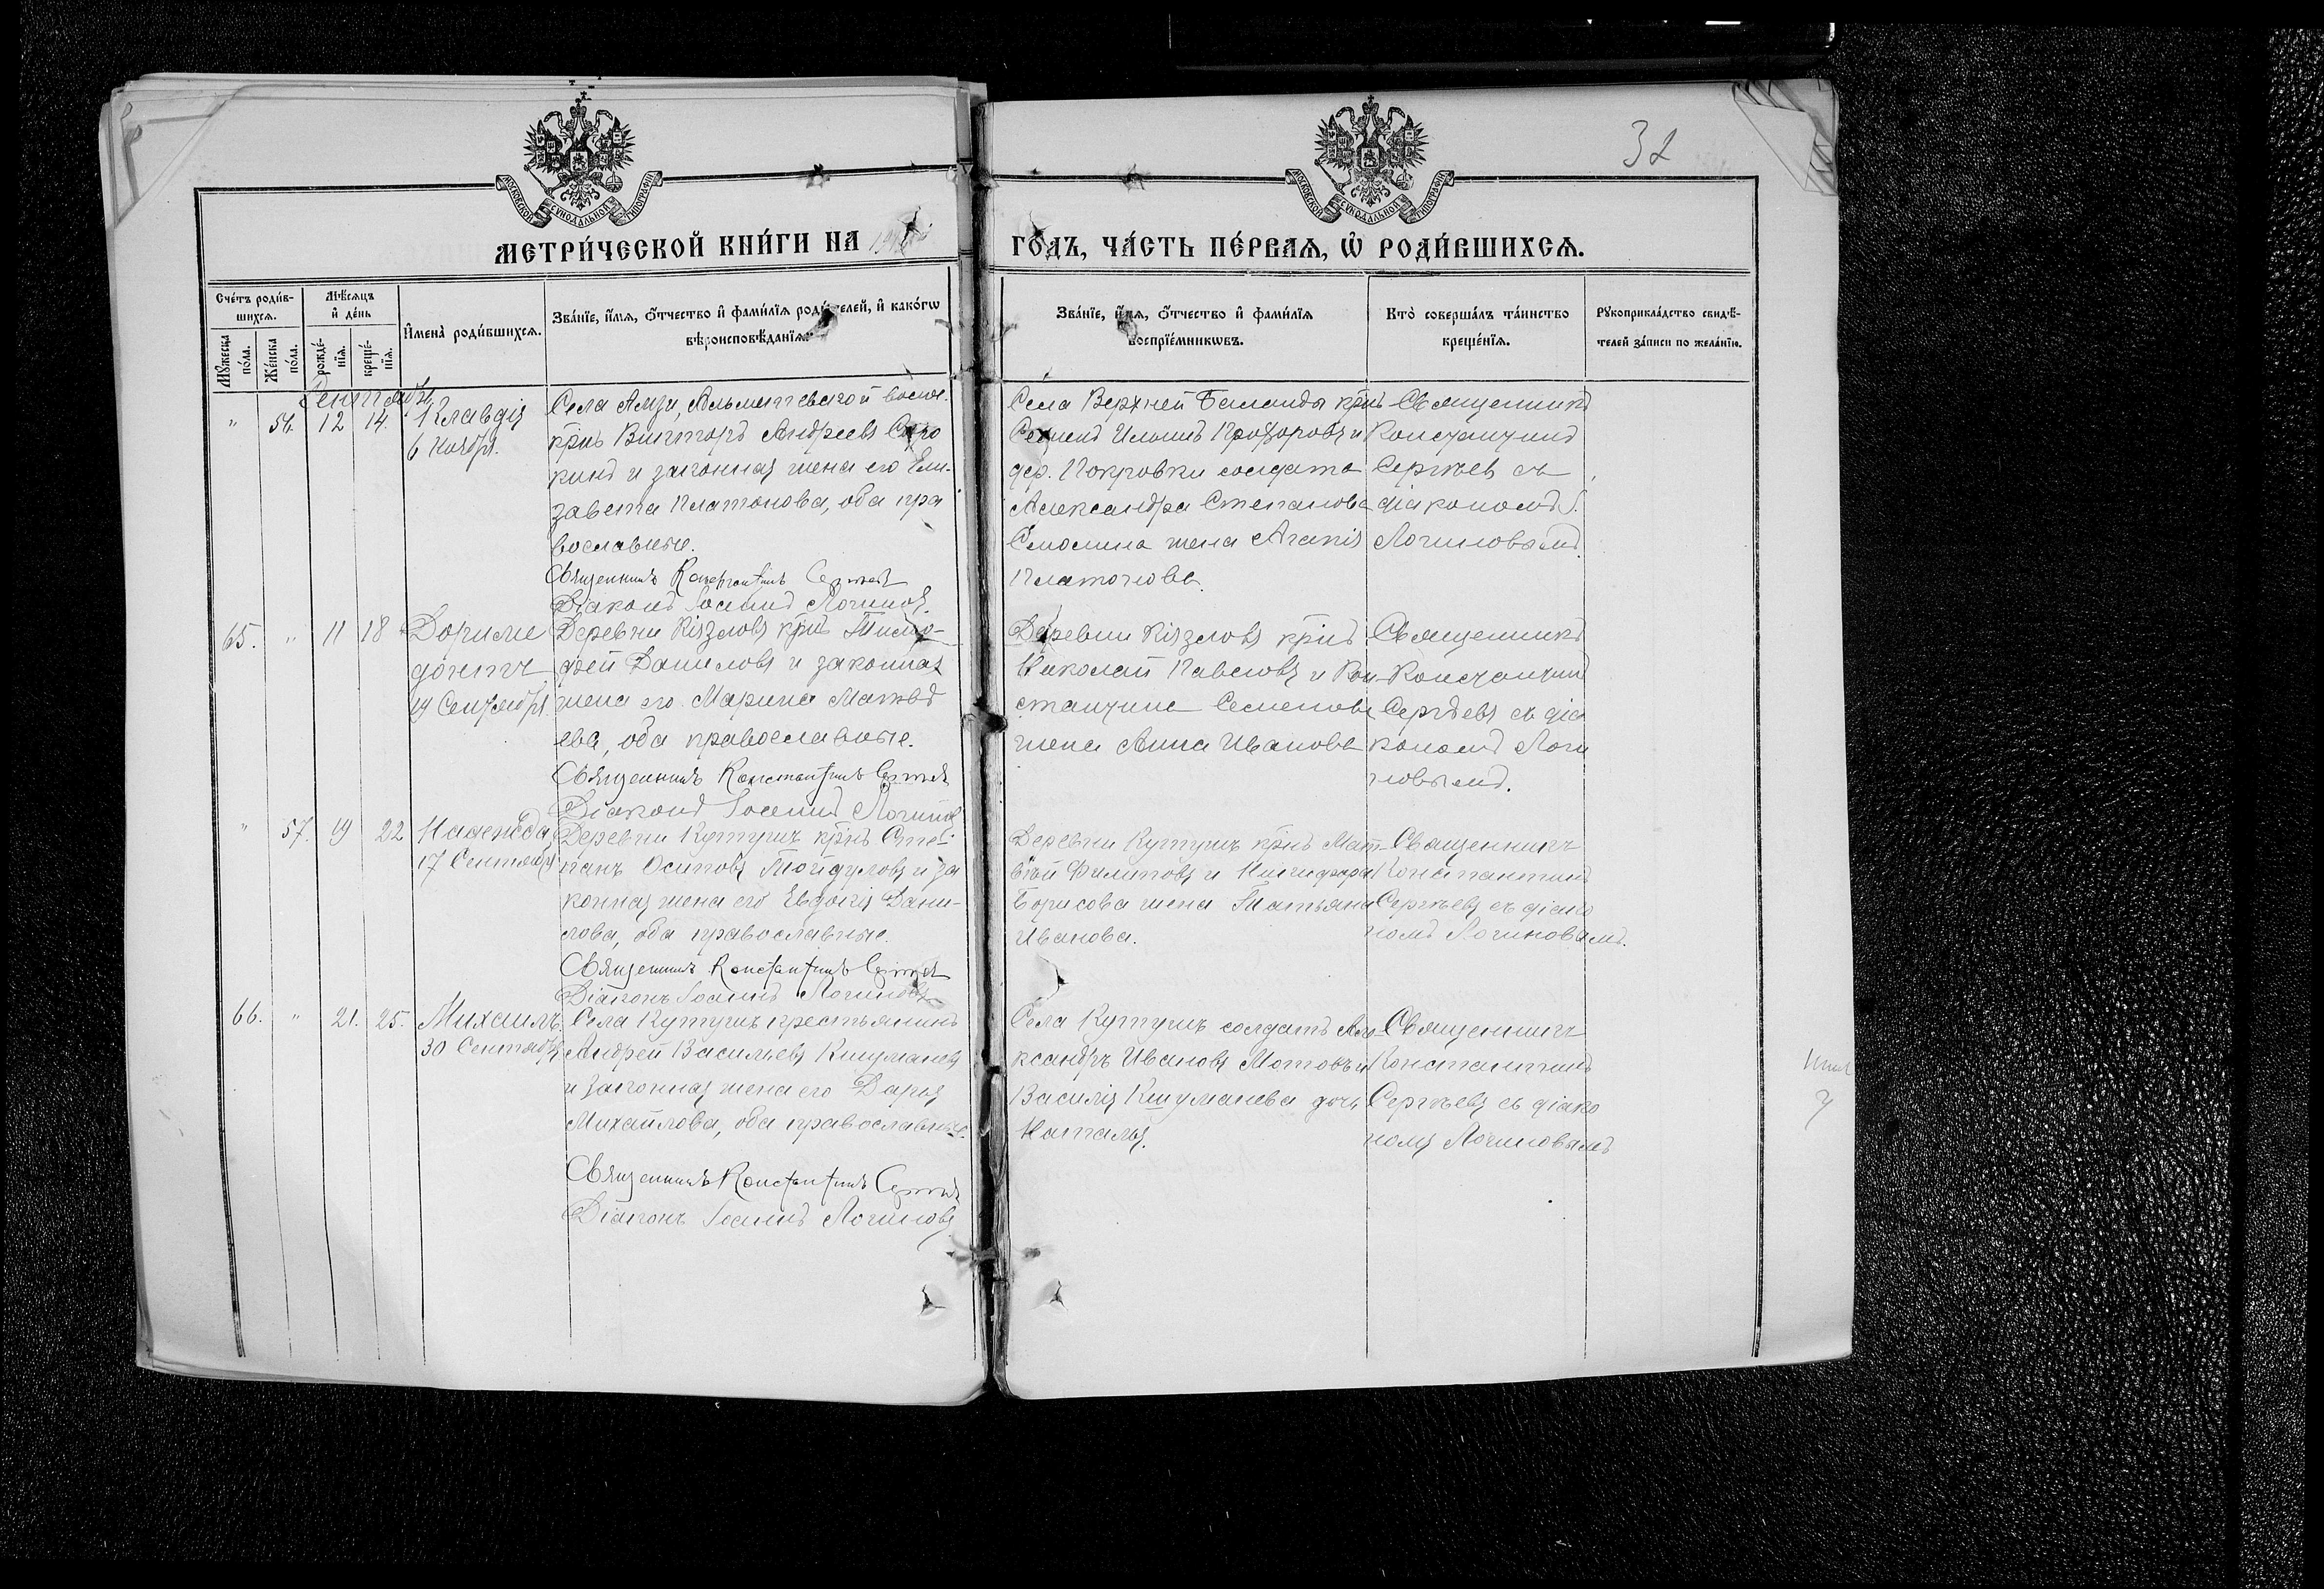 32
МОСКОВСКОЙ СУНОДАЛЬНОЙ ТИПОГРАФІИ
МОСКОВСКОЙ СУНОДАЛЬНОЙ ТИПОГРАФІИ
МЕТРИ́ЧЕСКОЙ КНИ́ГИ НА
ГО́ДЪ, ЧА́СТЬ ПЕ́РВАѦ, Ѡ РОДИ́ВШИХСѦ.
Сче́тъ роди́в-
шихсѧ.
Мꙋ́жеска по́ла.
Же́нска по́ла.
Мѣ́сѧцъ и де́нь
рожде́-нїѧ.
креще́-нїѧ.
Имена̀ роди́вшихсѧ.
Зва́нїе, и́мѧ, о́тчество и фами́лїѧ роди́телей, и како́гѡ
вѣроисповѣ́данїѧ.
Зва́нїе, и́мѧ, о́тчество и фами́лїѧ
воспрїе́мникѡвъ.
Кто̀ соверша́лъ та́инство
креще́нїѧ.
Рꙋкоприкла́дство свидѣ́-
телей за́писи по жела́нїю.
Сентябрь
" 56. 12 14. Клавдія
6 Ноября.
Села Амзи, Альметевской волос.
крнъ Викторъ Андреевъ Соро
кинъ и законная жена его Ели-
завета Платонова, оба пра
вославные.
Священникъ Константинъ Сергѣевъ
Діаконъ Іоаннъ Логиновъ.
Села Верхней Баланды крнъ
Семенъ Ильинъ Прохоровъ и
дер. Покровки солдата
Александра Степанова
Смолина жена Агапія
Платонова.
Священникъ
Константинъ
Сергѣевъ съ
діакономъ І.
Логиновымъ.
65. " 11 18 Дориме
донтъ
19 Сентября.
Деревни Князловъ крнъ Тимо-
фей Даниловъ и законная
жена его Марина Матвѣ
ева, оба православные.
Священникъ Константинъ Сергѣевъ
Діаконъ Іоаннъ Логиновъ.
Деревни Князловъ крнъ
Николай Павловъ и Кон
стантина Семенова
жена Анна Иванова
Священникъ
Константинъ
Сергѣевъ съ діа
кономъ Логи
новымъ.
" 57. 19 22 Надежда
17 Сентября
Деревни Кутушъ крнъ Сте-
панъ Осиповъ и за
конная жена его Евдокія Дани-
лова, оба православные.
Священникъ Константинъ Сергѣевъ
Діаконъ Іоаннъ Логиновъ
Деревни Кутушъ крнъ Мат
вѣй Филиповъ и Никифора
Борисова жена Татьяна
Иванова.
Священникъ
Константинъ
Сергѣевъ съ діако
номъ Логиновымъ.
66. " 21. 25. Михаилъ.
30 Сентября
Села Кутушъ крестьянинъ
Андрей Васильевъ Кшуманевъ
и законная жена его Дарья
Михайлова, оба православные.
Священникъ Константинъ Сергѣевъ
Діаконъ Іоаннъ Логиновъ
Села Кутушъ солдатъ Але
ксандръ Ивановъ Мотовъ и
Василія Кшуманева дочь
Наталья.
Священникъ
Константинъ
Сергѣевъ съ діако
номъ Логиновымъ